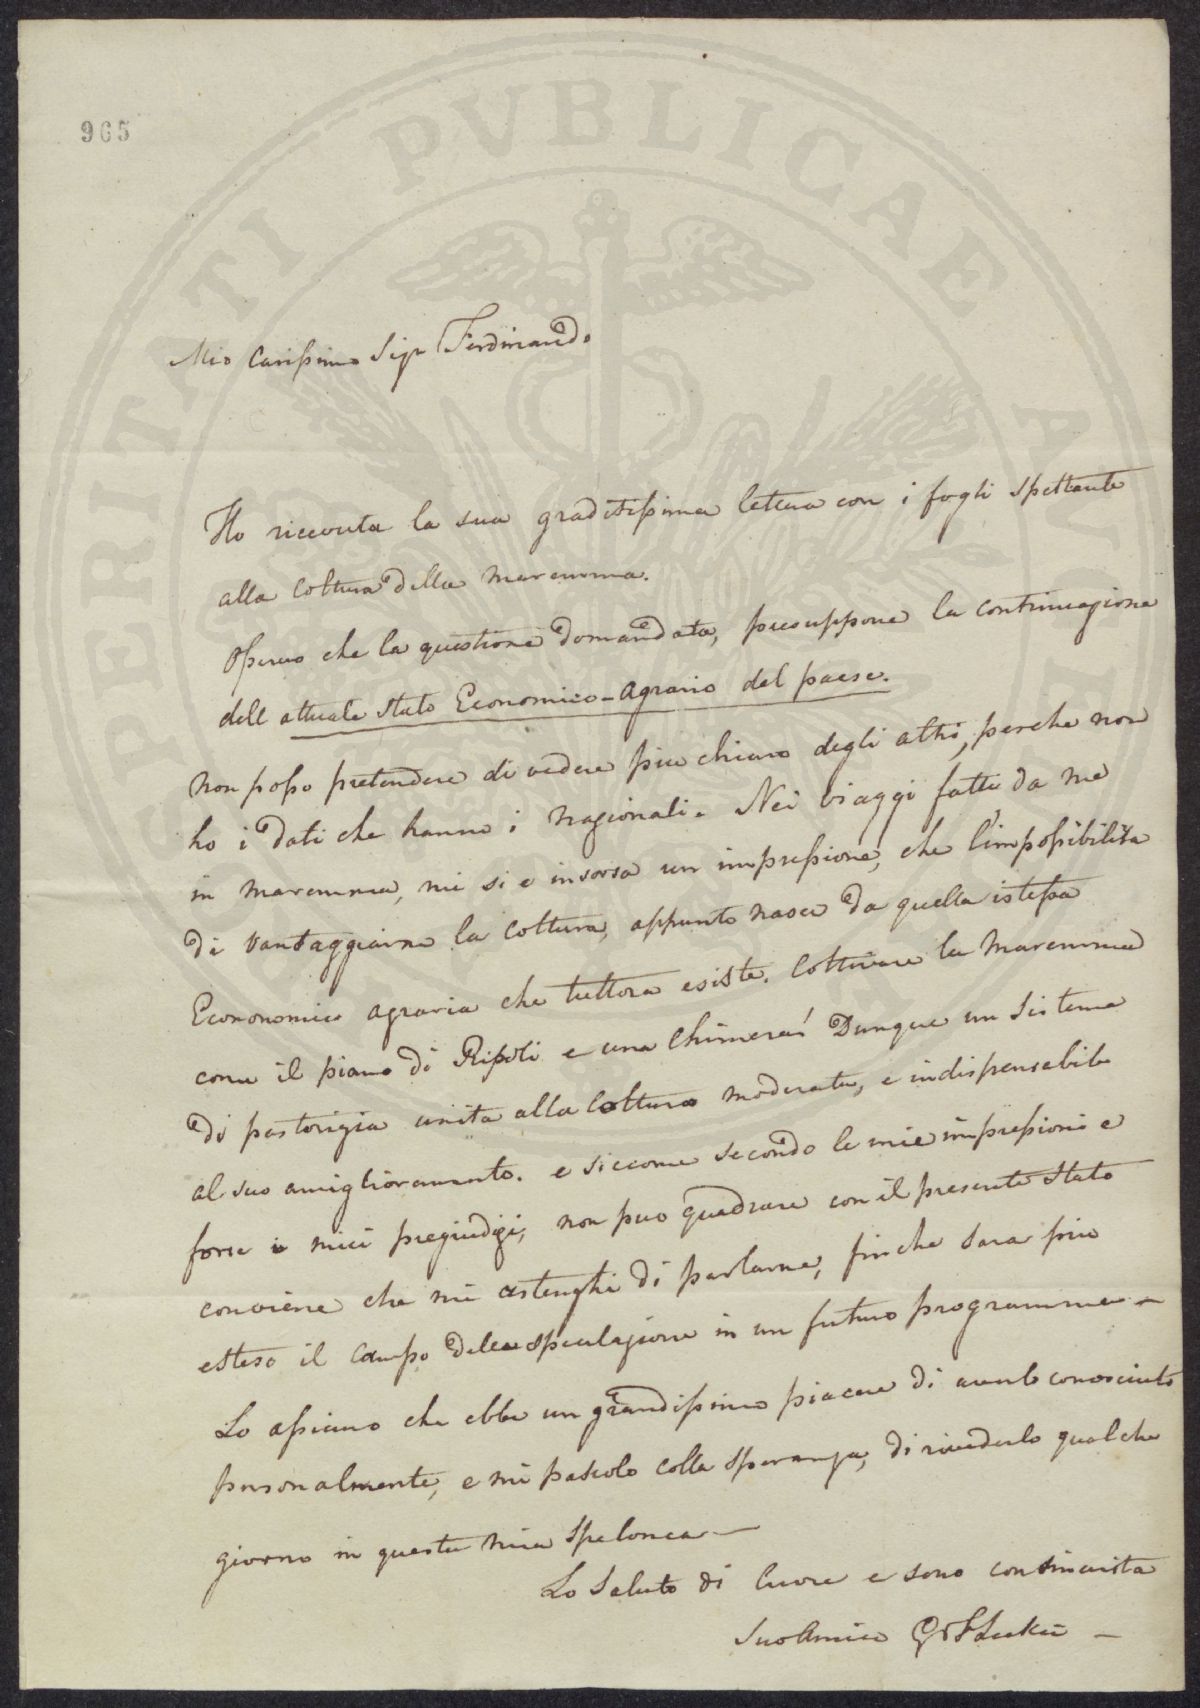 PERITATI PVBLICAE
965
Mio Carissimo Sigr Ferdinando
Ho riceuta la sua graditissima lettera con i fogli spettante
alla Coltura della Maremma.
Osservo che la questione domandata, presuppone la continuazione
dell attuale stato Economico-Agrario del paese.
Non posso pretendere di vedere piu chiaro degli altri, perche non
ho i dati che hanno i nazionali. Nei viaggi fatti da me
in maremma, mi si e insorsa un impressione, che l'impossibilita
di vantaggiarne la Coltura, appunto nasce da quella istessa
Econonomica agraria che tuttora esiste. Coltivare la Maremma
come il piano di Ripoli e una Chimera! Dunque un sistema
di pastorizia unita alla Coltura moderata, e indispensabile
al suo amiglioramento. e siccome secondo le mie impressioni e
forse i miei pregiudizi, non puo quadrare con il presente stato
conviene che mi astenghi di parlarne, finche sara piu
esteso il Campo della speculazione in un futuro programma —
Lo assicuro che ebbe un grandissimo piacere di averlo conosciuto
personalmente, e mi pascolo colla speranza, di rivederlo qualche
giorno in questa mia Spelonca —
Lo Saluto di Cuore e sono con stima
Suo Amico